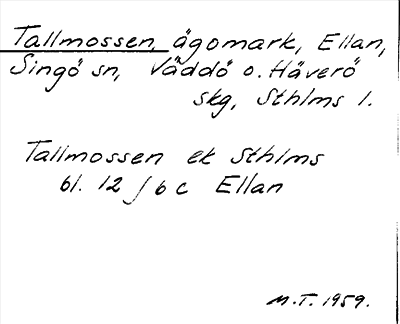 Tallmossen, ägomark, Ellan,
Singö sn, Väddö o. Häverö
skg, Sthlms l.
Tallmossen ek Sthlms
bl. 12 ∫ 6 c Ellan
M.T. 1959.